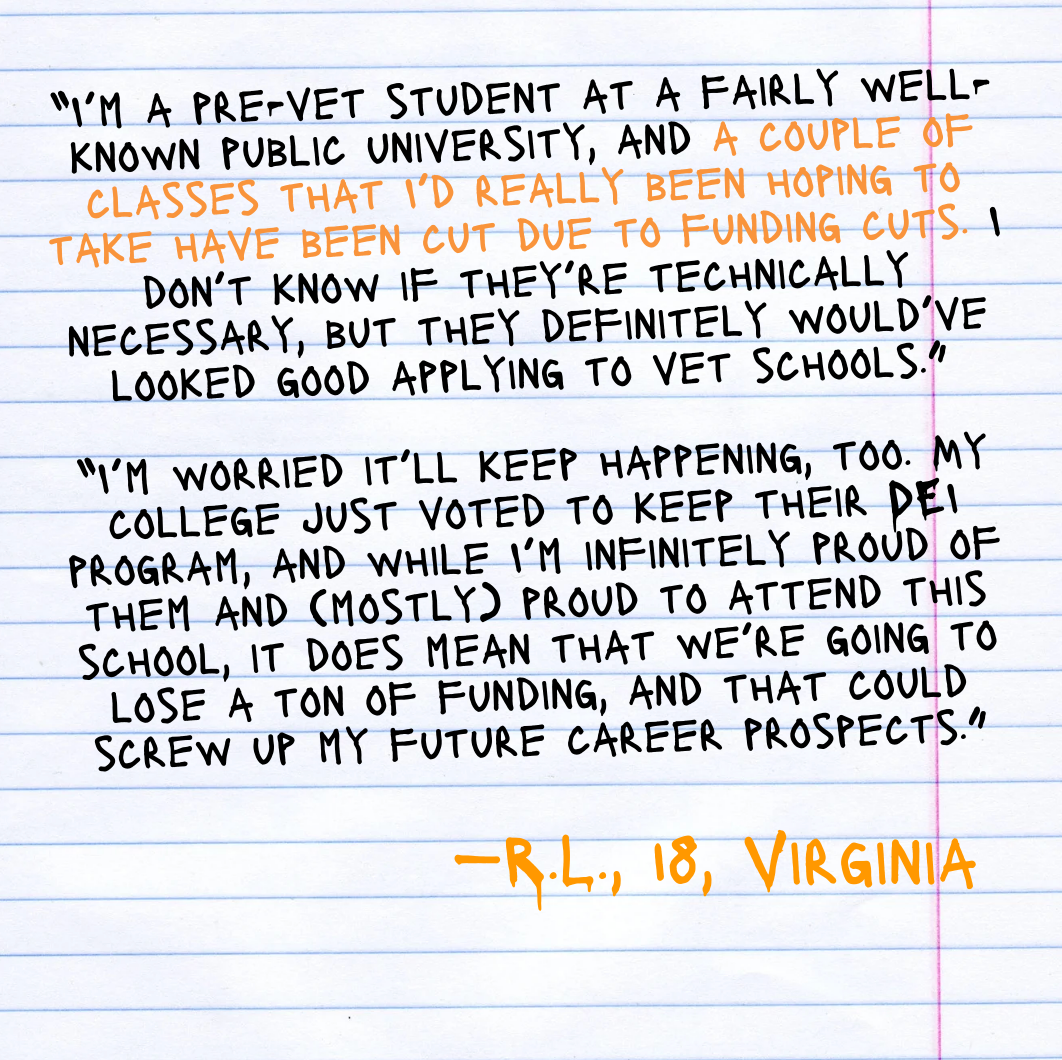 "I'M A PRE-VET STUDENT AT A FAIRLY WELL-
KNOWN PUBLIC UNIVERSITY, AND A COUPLE OF
CLASSES THAT I'D REALLY BEEN HOPING TO
TAKE HAVE BEEN CUT DUE TO FUNDING CUTS. I
DON'T KNOW IF THEY'RE TECHNICALLY
NECESSARY, BUT THEY DEFINITELY WOULD'VE
LOOKED GOOD APPLYING TO VET SCHOOLS."
"I'M WORRIED IT'LL KEEP HAPPENING, TOO. MY
COLLEGE JUST VOTED TO KEEP THEIR DEI
PROGRAM, AND WHILE I'M INFINITELY PROUD OF
THEM AND (MOSTLY) PROUD TO ATTEND THIS
SCHOOL, IT DOES MEAN THAT WE'RE GOING TO
LOSE A TON OF FUNDING, AND THAT COULD
SCREW UP MY FUTURE CAREER PROSPECTS."
—R.L., 18, VIRGINIA